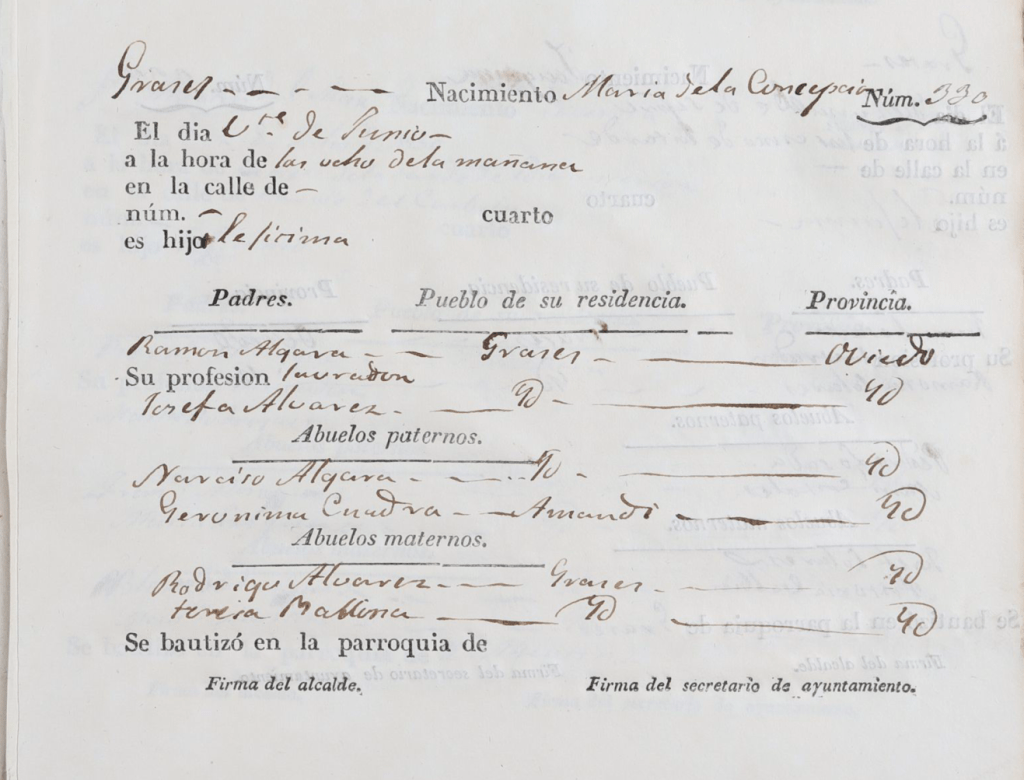 Grases - - - - Nacimiento Maria de la Concepcion Núm. 330
El dia de Junio -
a la hora de las ocho de la mañana
en la calle de -
núm. - cuarto
es hija lejitima
Padres. Pueblo de su residencia. Provincia.
Ramon Algara - - Grases - Oviedo
Su profesion labrador
Josefa Alvarez - - Yd - Yd
Abuelos paternos.
Narciso Algara - - Yd - Yd
Geronima Cuadra - Amandi - Yd
Abuelos maternos.
Rodrigo Alvarez - - Grases - Yd
Teresa Ballina - Yd - Yd
Se bautizó en la parroquia de
Firma del alcalde. Firma del secretario de ayuntamiento.